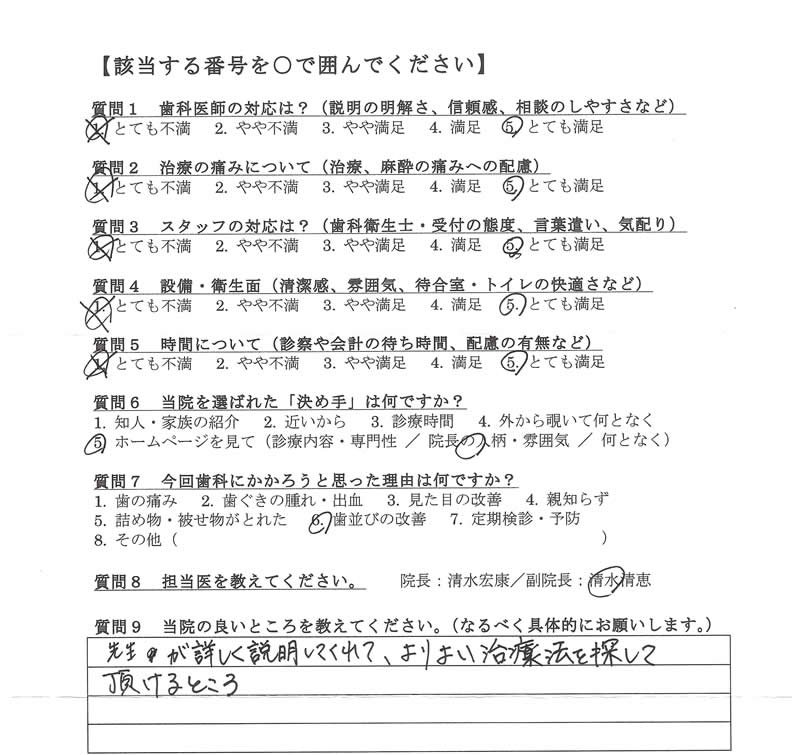 【該当する番号を○で囲んでください】
質問1 歯科医師の対応は？（説明の明解さ、信頼感、相談のしやすさなど）
1. とても不満 2. やや不満 3. やや満足 4. 満足 5. とても満足
質問2 治療の痛みについて（治療、麻酔の痛みへの配慮）
1. とても不満 2. やや不満 3. やや満足 4. 満足 5. とても満足
質問3 スタッフの対応は？（歯科衛生士・受付の態度、言葉遣い、気配り）
1. とても不満 2. やや不満 3. やや満足 4. 満足 5. とても満足
質問4 設備・衛生面（清潔感、雰囲気、待合室・トイレの快適さなど）
1. とても不満 2. やや不満 3. やや満足 4. 満足 5. とても満足
質問5 時間について（診察や会計の待ち時間、配慮の有無など）
1. とても不満 2. やや不満 3. やや満足 4. 満足 5. とても満足
質問6 当院を選ばれた「決め手」は何ですか？
1. 知人・家族の紹介 2. 近いから 3. 診療時間 4. 外から覗いて何となく
5. ホームページを見て（診療内容・専門性 ／ 院長の人柄・雰囲気 ／ 何となく）
質問7 今回歯科にかかろうと思った理由は何ですか？
1. 歯の痛み 2. 歯ぐきの腫れ・出血 3. 見た目の改善 4. 親知らず
5. 詰め物・被せ物がとれた 6. 歯並びの改善 7. 定期検診・予防
8. その他（ ）
質問8 担当医を教えてください。 院長：清水宏康／副院長：清水清恵
質問9 当院の良いところを教えてください。（なるべく具体的にお願いします。）
先生が詳しく説明してくれて、よりよい治療法を探して
頂けるところ